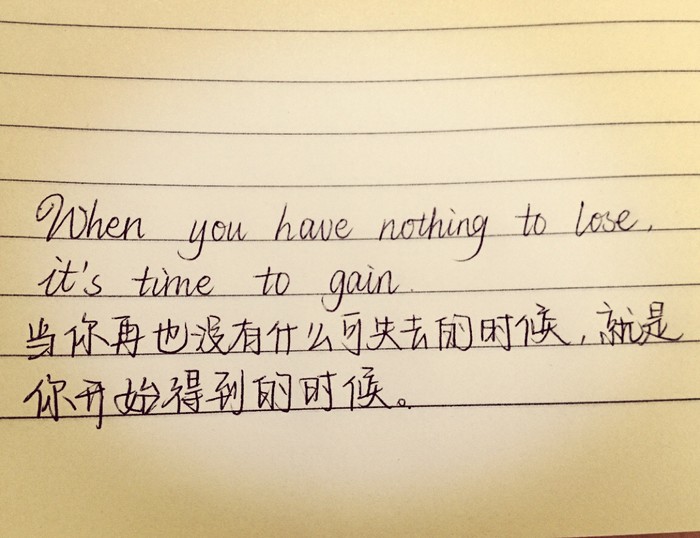 When you have nothing to lose,
it's time to gain.
当你再也没有什么可失去的时候，就是
你开始得到的时候。